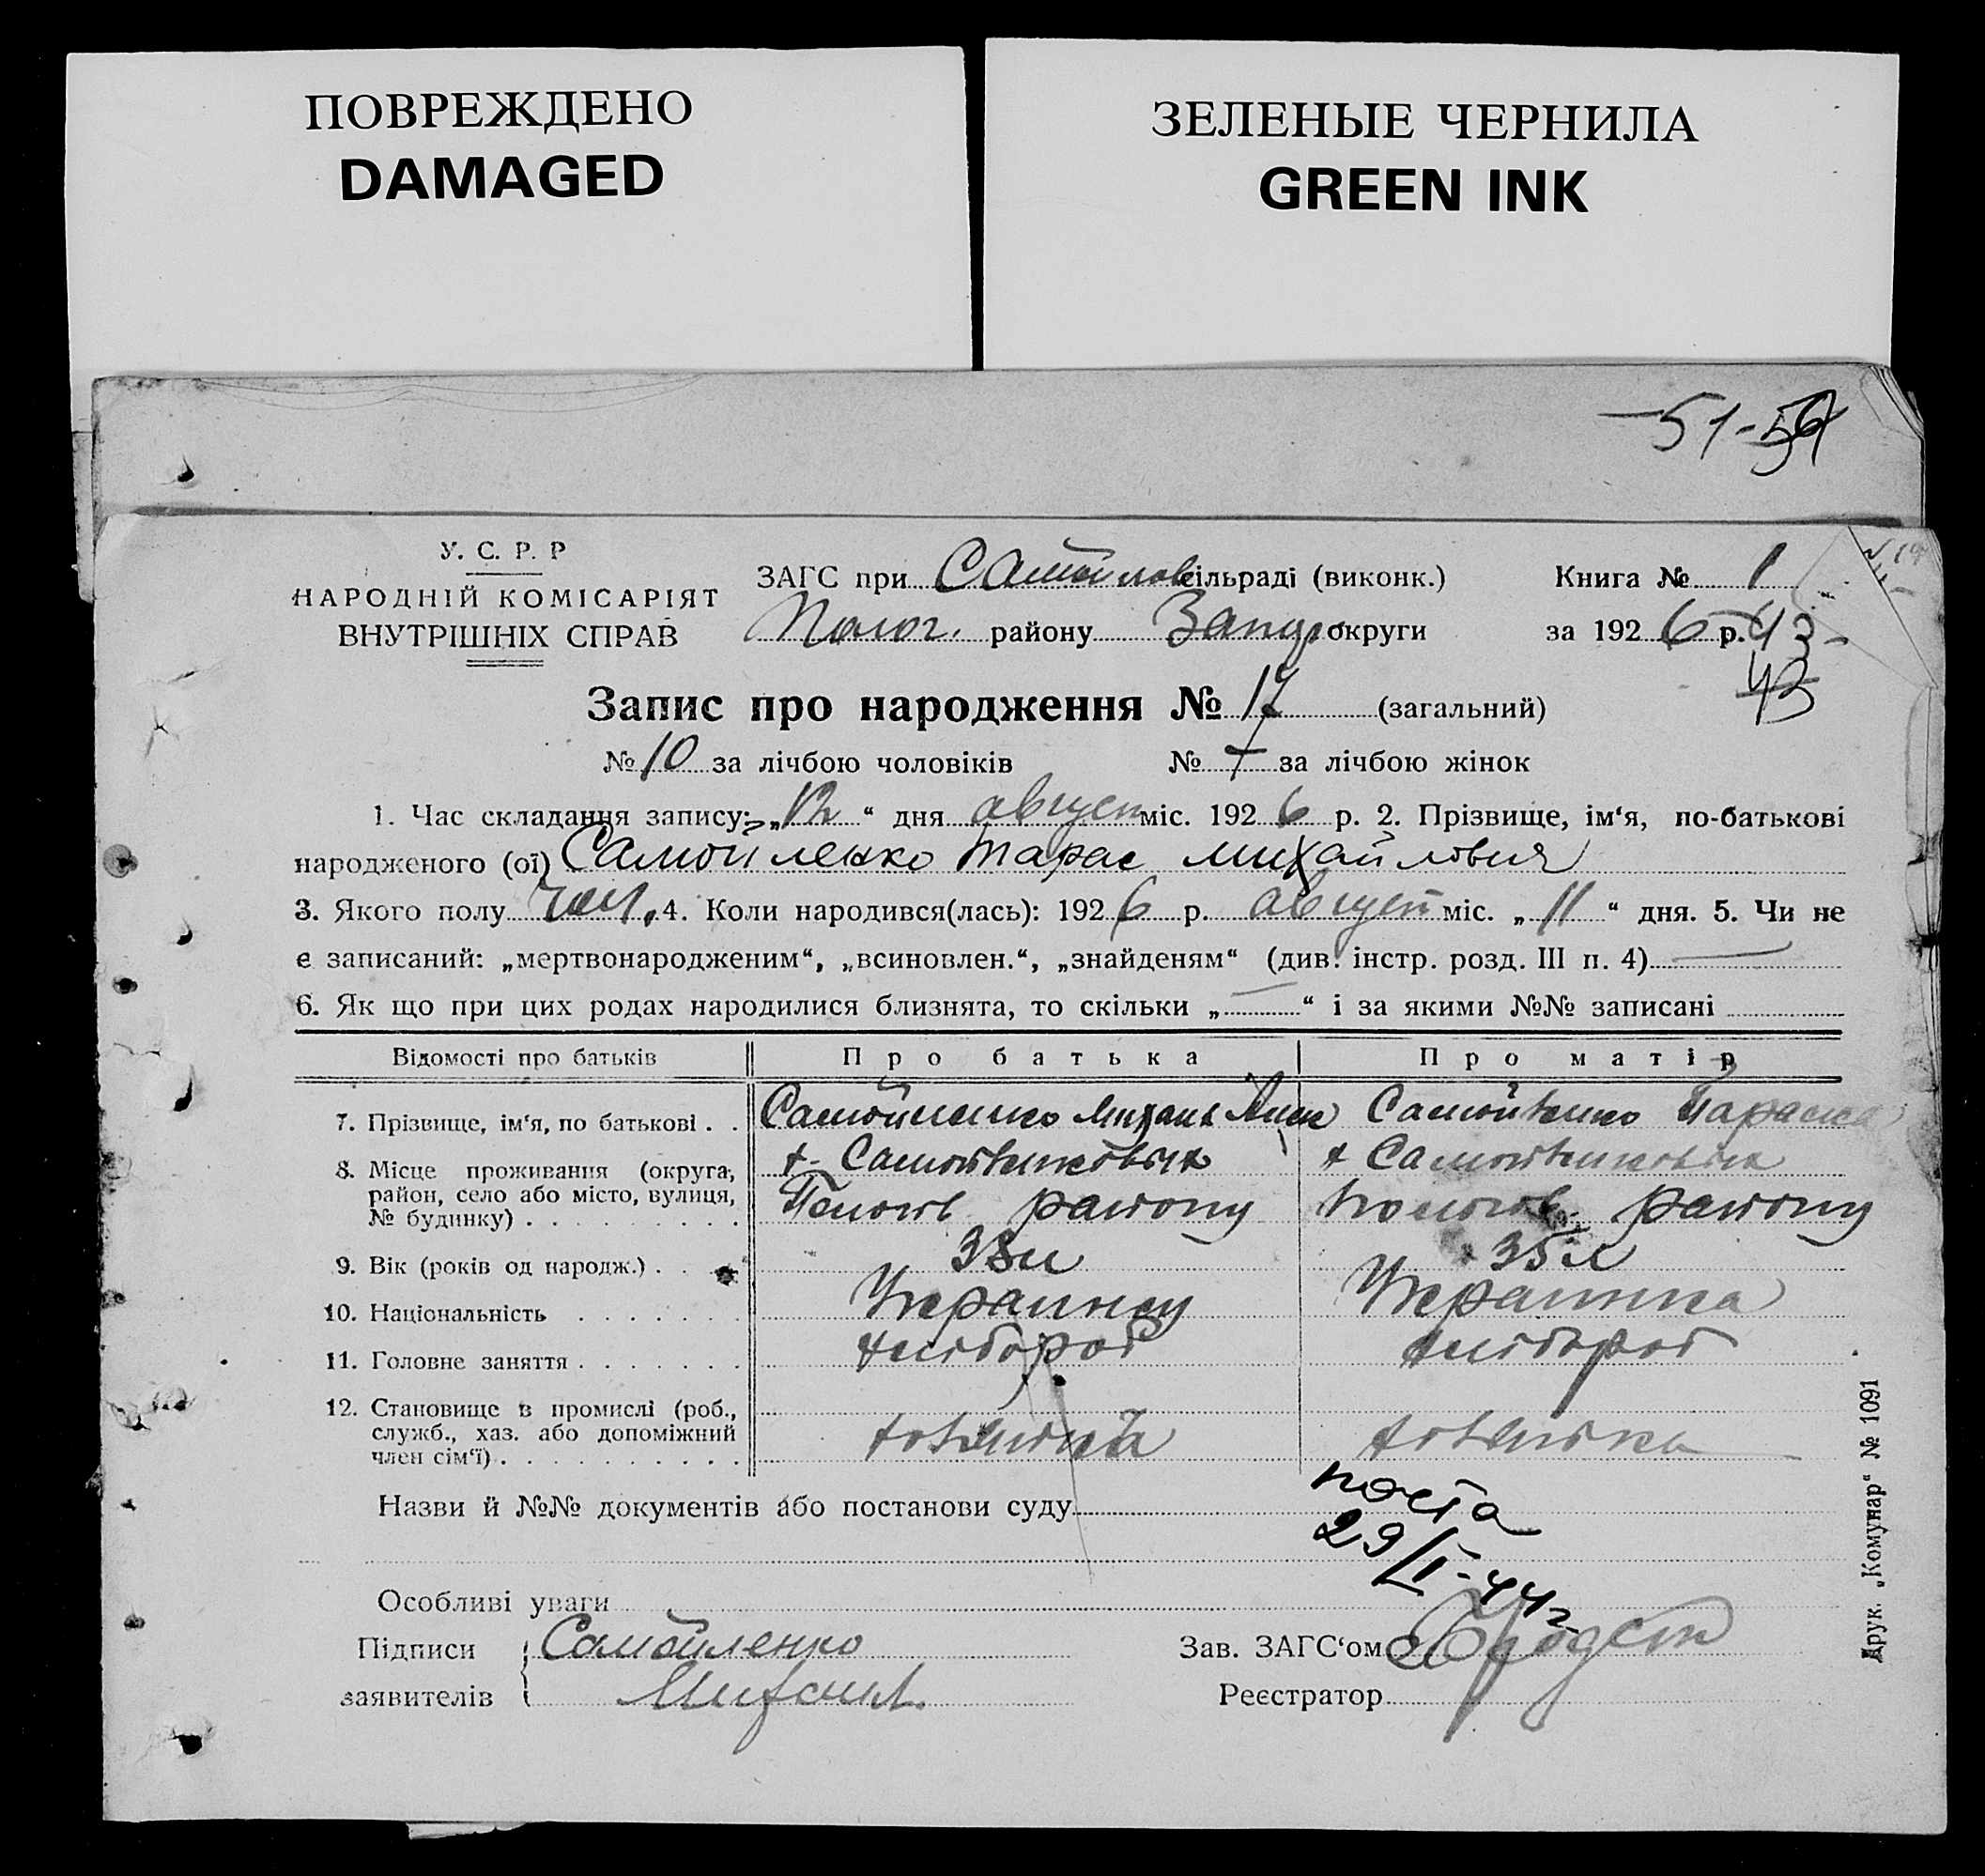 ПОВРЕЖДЕНО
DAMAGED
ЗЕЛЕНЫЕ ЧЕРНИЛА
GREEN INK
51-
У. С. Р. Р
НАРОДНІЙ КОМІСАРІЯТ
ВНУТРІШНІХ СПРАВ
ЗАГС при Самойлов сільраді (виконк.) Книга № 1
Полог. району Запор округи за 1926 р. 43-
43
Запис про народження № 17 (загальний)
№ 10 за лічбою чоловіків № 7 за лічбою жінок
1. Час складання запису: „12“ дня август міс. 1926 р. 2. Прізвище, ім‘я, по-батькові
народженого (ої) Самойленко Тарас Михайлович
3. Якого полу чол. 4. Коли народився(лась): 1926 р. август міс. „11“ дня. 5. Чи не
є записаний: „мертвонародженим“, „всиновлен.“, „знайденям“ (див. інстр. розд. III п. 4) —
6. Як що при цих родах народилися близнята, то скільки „—“ і за якими №№ записані
Відомості про батьків Про батька Про матір
7. Прізвище, ім‘я, по батькові . . Самойленко Михаил Самойленко Параска
8. Місце проживання (округа, район, село або місто, вулиця, № будинку) . . . х. Самойленковка х Самойленковка
Пологів району Пологів. району
9. Вік (років од народж.) . . 38 л 35 л
10. Національність . . . Украинец Украинка
11. Головне заняття . . . хлібороб хлібороб
12. Становище в промислі (роб., служб., хаз. або допоміжний член сім‘ї) . . .
Назви й №№ документів або постанови суду
29/I-44г
Особливі уваги
Підписи Самойленко Зав. ЗАГС‘ом
заявителів Михаил. Реєстратор
Друк. „Комунар“ № 1091